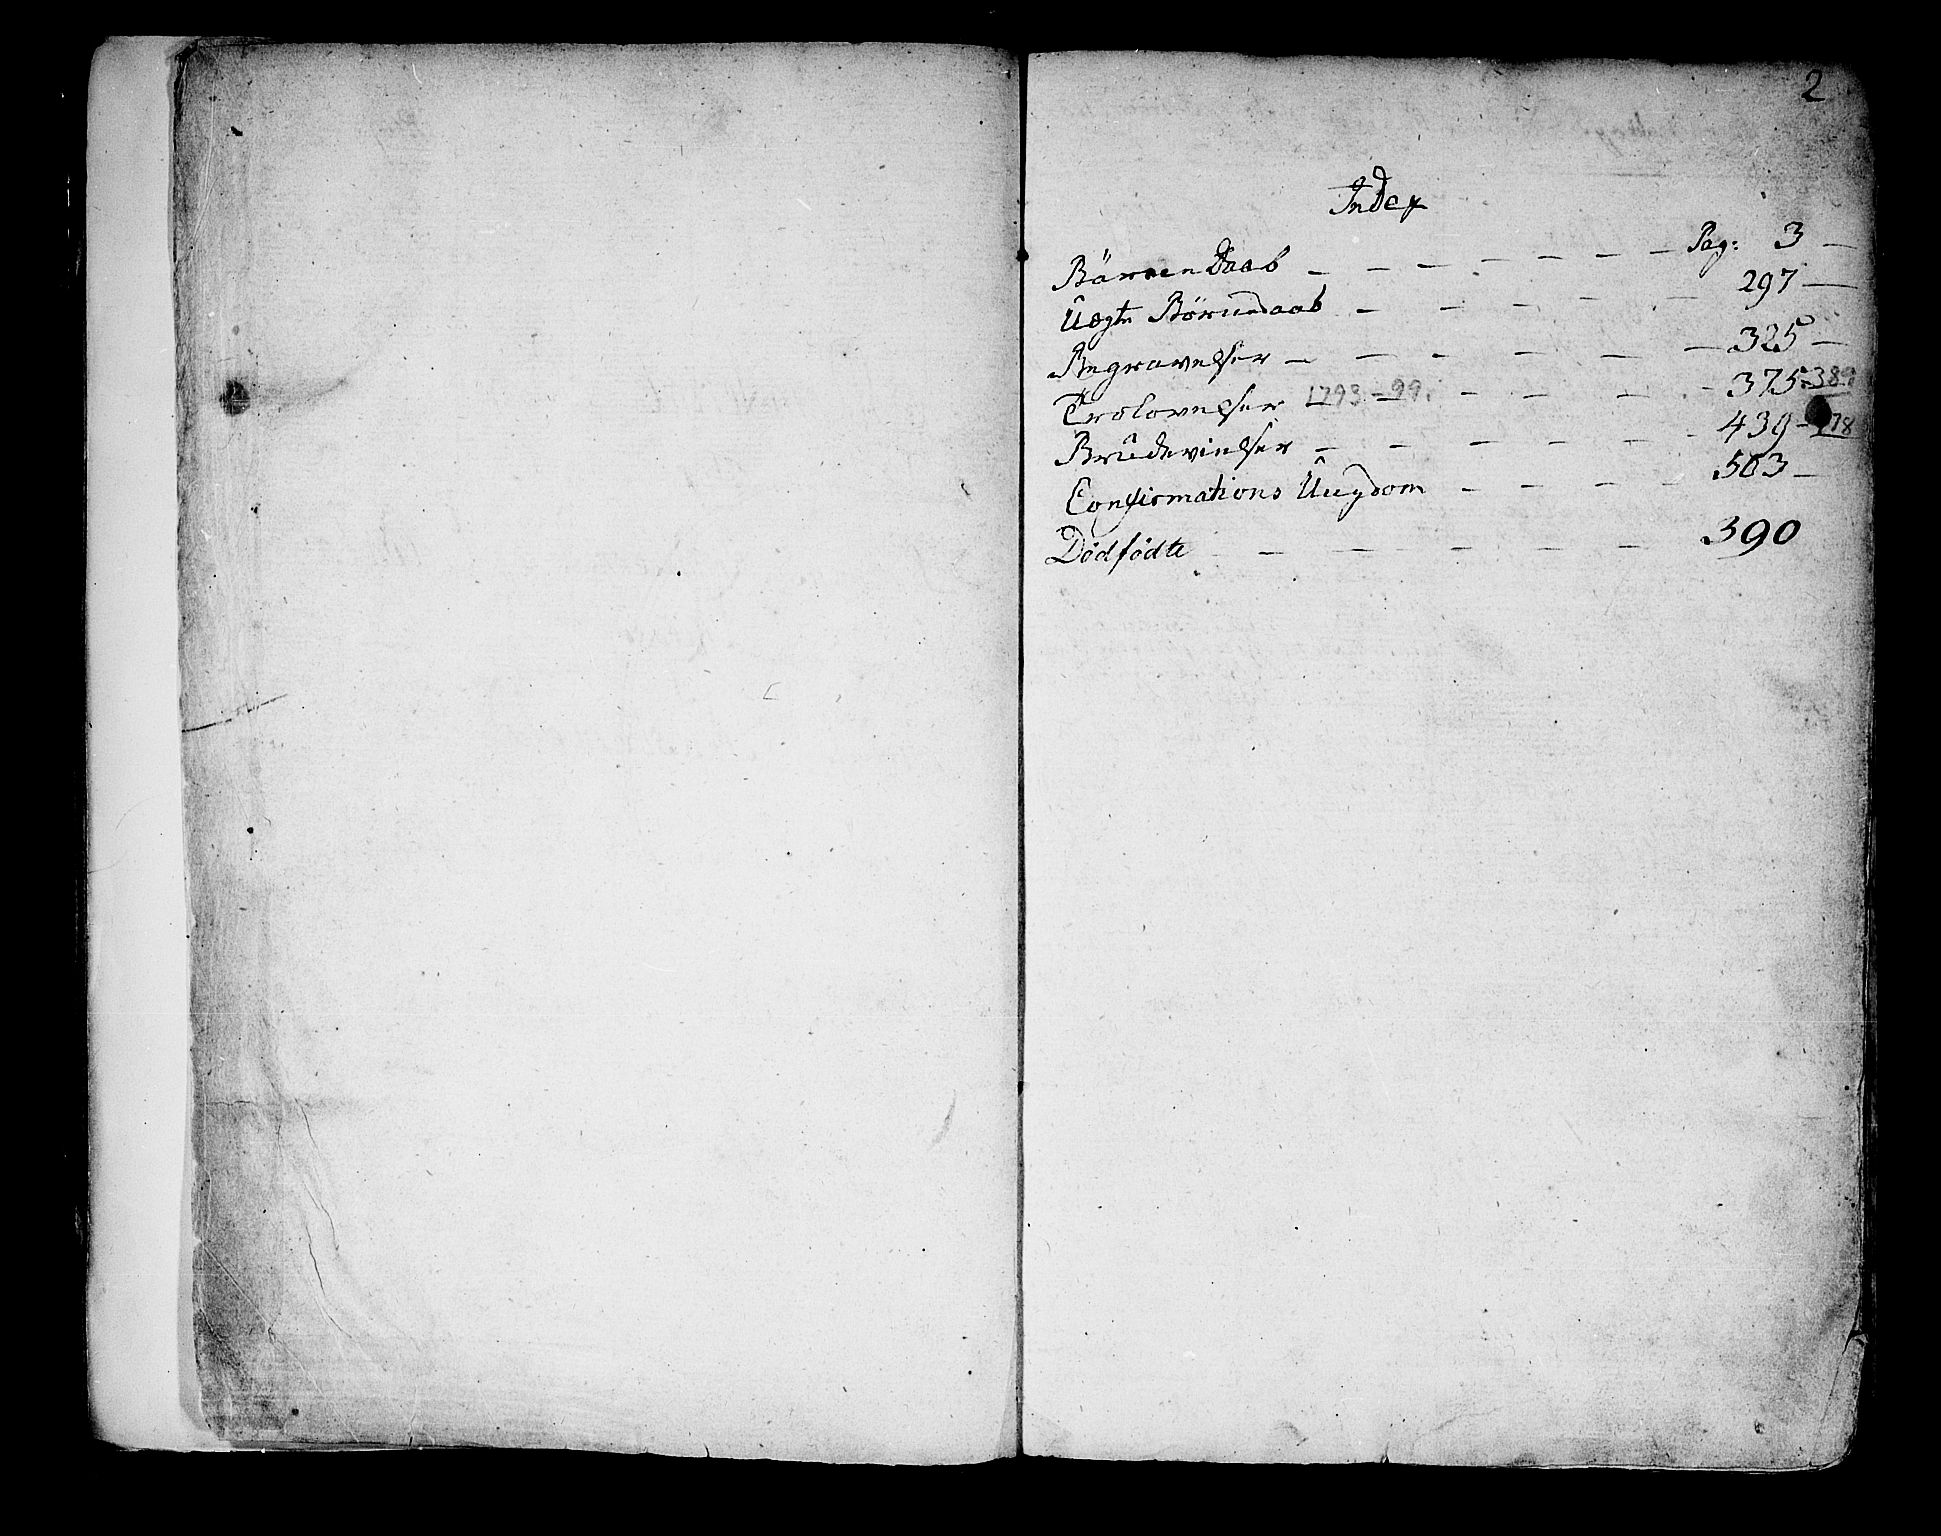 2
Index
Börnen Daab - - - - - - - Pag: 3 -
Uægte Börnedaab - - - - - - 297 -
Begravelser - - - - - - 325 -
Trolovelser 1793-99. - - - - - 375-389
Brüdevielser - - - - - - 439-478
Confirmations Ûngdom - - - - 503 -
Dödfödte - - - - - 390